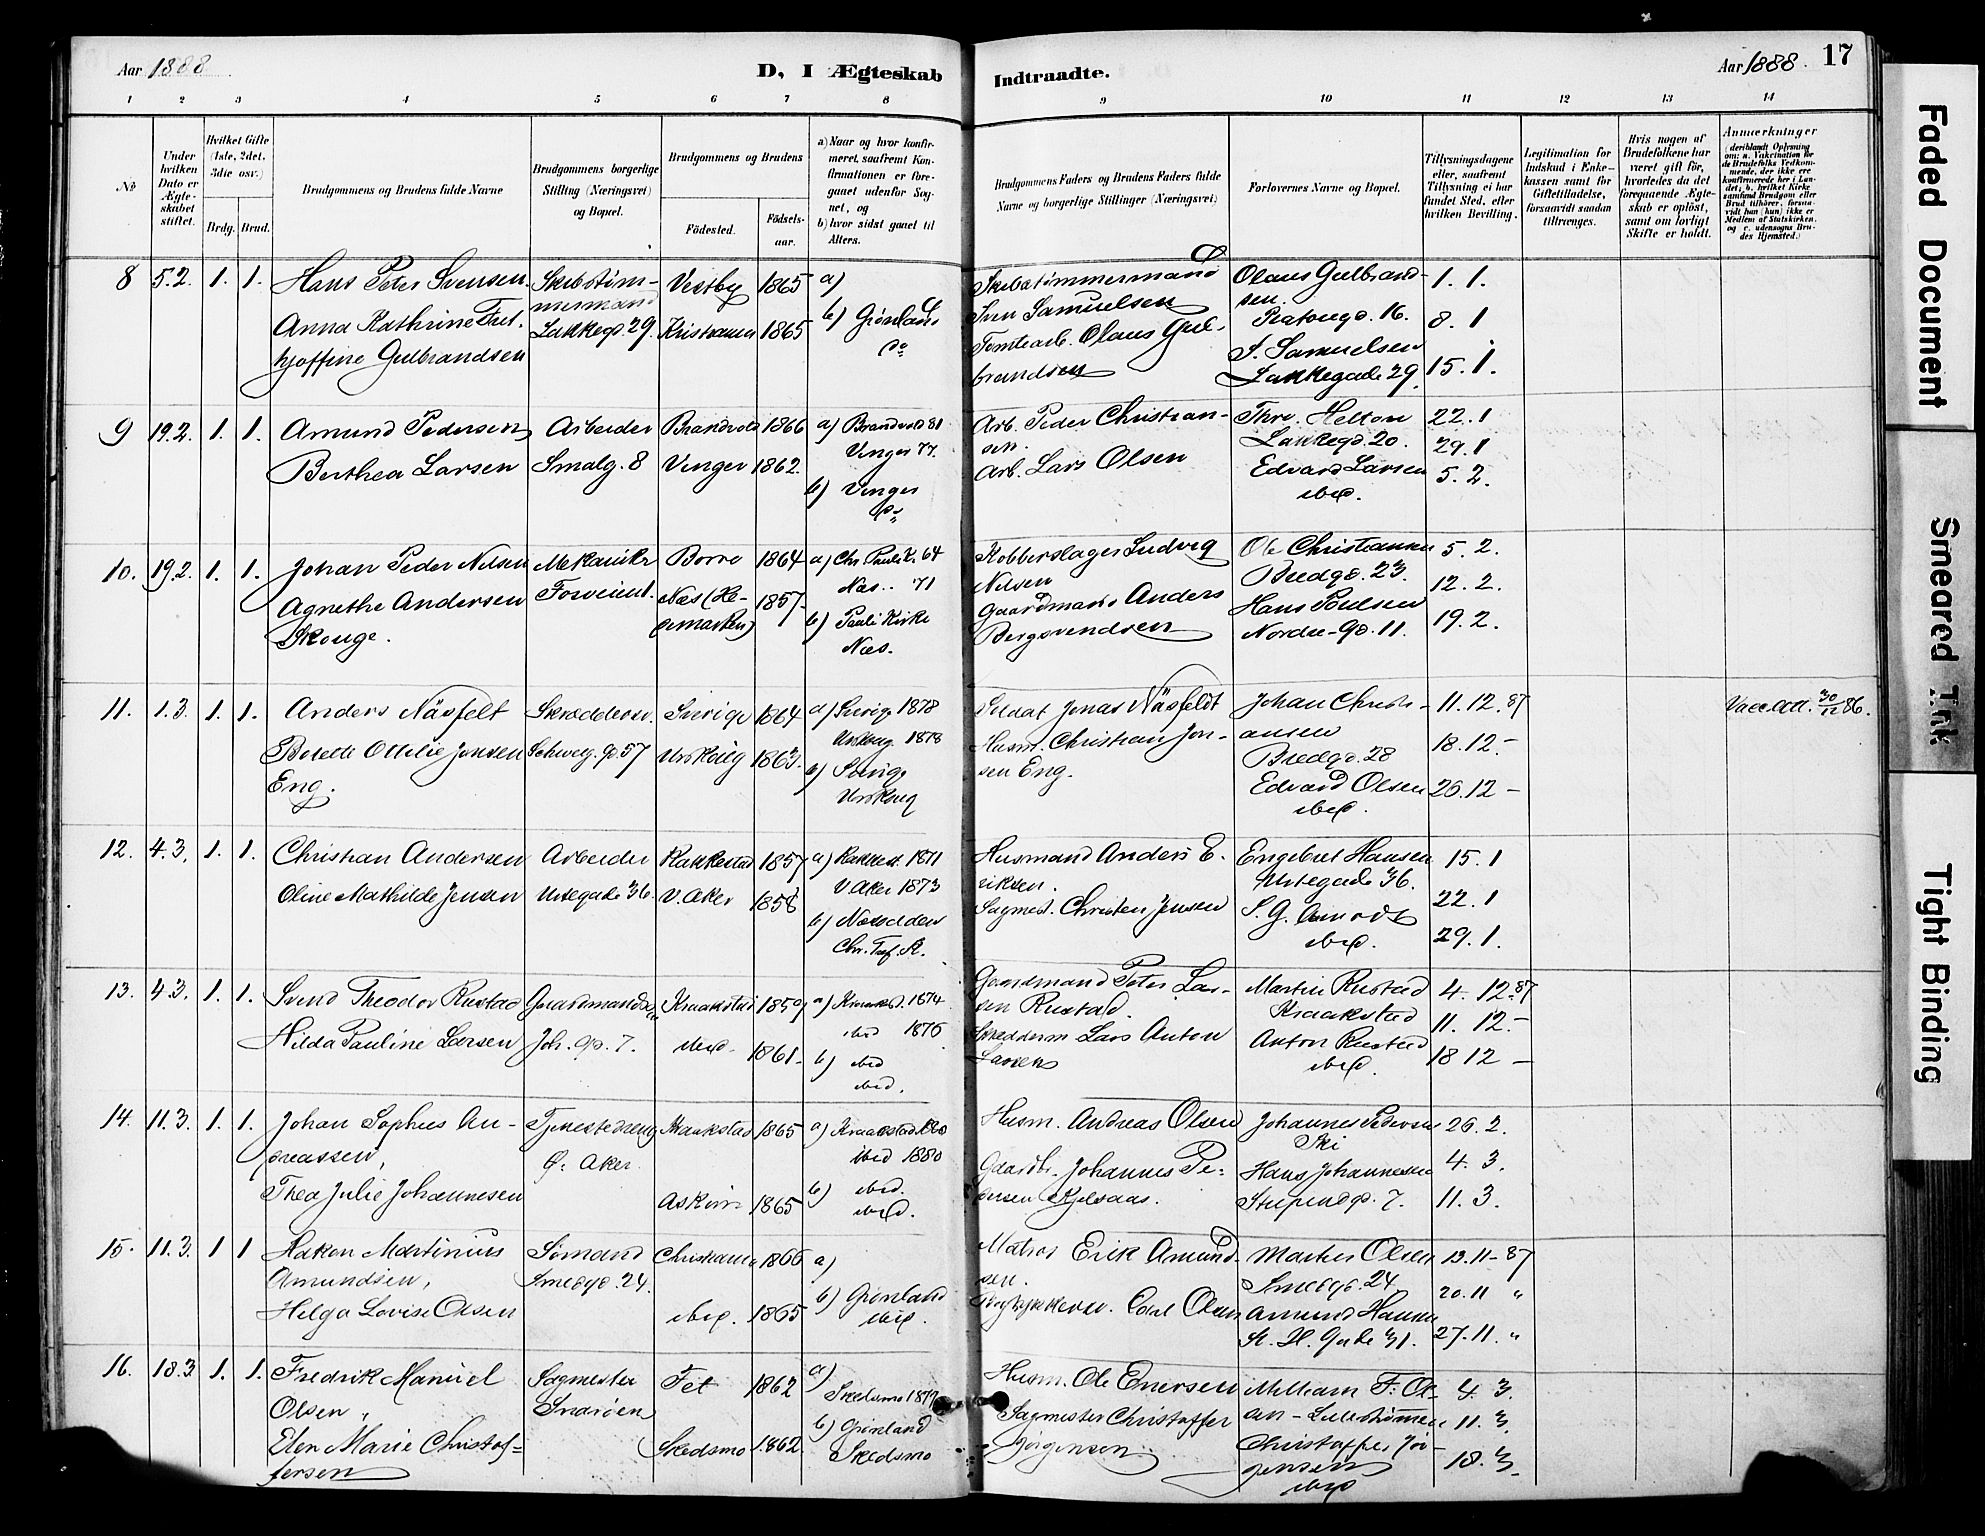 Aar 1888.
D, I Ægteskab
Indtraadte.
Aar 1888. 17
1 2 3 4 5 6 7 8 9 10 11 12 13 14
№
Under hvilken Dato er Ægteskabet stiftet.
Hvilket Gifte (1ste, 2det, 3die osv.)
Brdg. Brud.
Brudgommens og Brudens fulde Navne
Brudgommens borgerlige Stilling (Næringsvei) og Bopæl.
Brudgommens og Brudens
Fødested.
Fødselsaar.
a) Naar og hvor konfirmeret, saafremt Konfirmationen er foregaaet udenfor Sognet, og
b) hvor sidst gaaet til Alters.
Brudgommens Faders og Brudens Faders fulde Navne og borgerlige Stillinger (Næringsvei)
Forlovernes Navne og Bopæl.
Tillysningsdagene eller, saafremt Tillysning ei har fundet Sted, efter hvilken Bevilling.
Legitimation for Indskud i Enkekassen samt for Giftetilladelse, forsaavidt saadan tiltrenges.
Hvis nogen af Brudefolkene har været gift før, hvorledes da det foregaaende Ægteskab er opløst, samt om lovligt Skifte er holdt.
Anmerkninger (deriblandt Oplysning om: a. Vakcination for de Brudefolks Vedkommende, der ikke ere konfirmerede her i Landet; b. hvilket Kirkesamfund Brudgom eller Brud tilhører, forsaavidt han (hun) ikke er Medlem af Statskirken, og c. udensogns Brudes Hjemsted.)
8 5.2. 1. 1. Hans Peter Svensen Skibstømmermand Vestby 1865 a)
Anna Kathrine Frithjoffine Gulbrandsen Lakkegd. 29. Kristiania 1865 b) Grønland do
Skibstømmermand Sven Samuelsen
Tomtearb. Olaus Gulbrandsen
Olaus Gulbrandsen Platougd. 16.
S. Samuelsen Lakkegade 29.
1. 1.
8. 1
15. 1.
9 19.2. 1. 1. Amund Pedersen Arbeider Brandvold 1866 a) Brandvold 81
Berthea Larsen Smalg. 8 Vinger 1862. Vinger 77.
b) Vinger do
Arb. Peder Christiansen.
Arb. Lars Olsen
Thrv. Helton Lakkegd. 20.
Edvard Larsen ibid.
22. 1
29. 1
5. 2.
10. 19.2. 1. 1. Johan Peder Nilsen Mekaniker Borre 1864 a) Chr. Pauli K. 64
Agnethe Andersen Skouge. Næs (Hedemarken) 1857. Næs.. 71
b) Pauli Kirke Næs.
Kobberslager Ludvig Nilsen
Gaardmand Anders Bergsvendsen
Ole Christiansen Bredgd. 23.
Hans Poulsen Nordre-gd. 11.
5. 2.
12. 2.
19. 2.
11. 1.3. 1. 1. Anders Näsfelt Skræddersv. Sverige 1864 a) Sverige 1878
Bolette Ottilie Jensen Eng. Schweig. gd 57 Urskoug 1863. Urskoug 1878
b) Sverige Urskoug
Soldat Jonas Näsfeldt
Husm. Christian Jensen Eng.
Johan Christiansen Bredgd. 28
Edvard Olsen ibid.
11. 12. 87
18. 12. -
26. 12 -
Vacc. Att. 30/12 86.
12. 4.3. 1. 1. Christian Andersen Arbeider Rakkestad 1857 a) Rakkest. 1871
Oline Mathilde Jensen Urtegade 36. V. Aker 1858 V. Aker 1873
b) Næsodden Chr. Tref. K.
Husmand Anders Eriksen.
Sagmest. Christen Jensen
Engebret Hansen Urtegade 36.
S. G. Amodt ibid.
15. 1
22. 1
29. 1.
13. 4.3. 1. 1. Svend Theodor Rustad Gaardmandssøn Kraakstad 1859 a) Kraakst. 1874
Hilda Pauline Larsen Joh. gd. 7. ibid. 1861. ibid 1876
b) ibid ibid.
Gaardmand Peter Larsen Rustad.
Skredderm Lars Anton Larsen
Martin Rustad Kraakstad
Anton Rustad ibid.
4. 12. 87
11. 12. -
18 12 -
14. 11.3. 1. 1. Johan Sophus Andreassen, Tjenestedreng Ø. Aker. Kraakstad 1865 a) Kraakstad 1880
Thea Julie Johannesen Askim 1865 ibid 1880
b) ibid. ibid.
Husm. Andreas Olsen
Gaardbr. Johannes Pedersen Kjelsaas.
Johannes Pedersen Ski
Hans Johannesen Stupendgd. 7.
26. 2.
4. 3.
11. 3.
15. 11.3. 1 1 Hakon Martinius Amundsen, Sømand Smedgd. 24. Christiania 1866 a)
Helga Lovise Olsen ibid. 1865 b) Grønland ibid.
Matros Erik Amundsen.
Carl Olsen
Martin Olsen Smedgd. 24
Amund Hansen St. H. Gade 31.
13. 11 - 87
20. 11 "
27. 11. "
16. 18.3 1. 1. Fredrik Manuel Olsen, Sagmester Snarøen Fet 1862 a)
Elen Marie Christoffersen Skedsmo 1862. Skedsmo 1877
b) Grønland Skedsmo
Husm. Ole Enersen
Sagmester Christoffer Jørgensen
William F. Olsen - Lillestrømmen
Christoffer Jørgensen ibid
4. 3.
11. 3.
18. 3.
Faded Document
Smeared Ink
Tight Binding